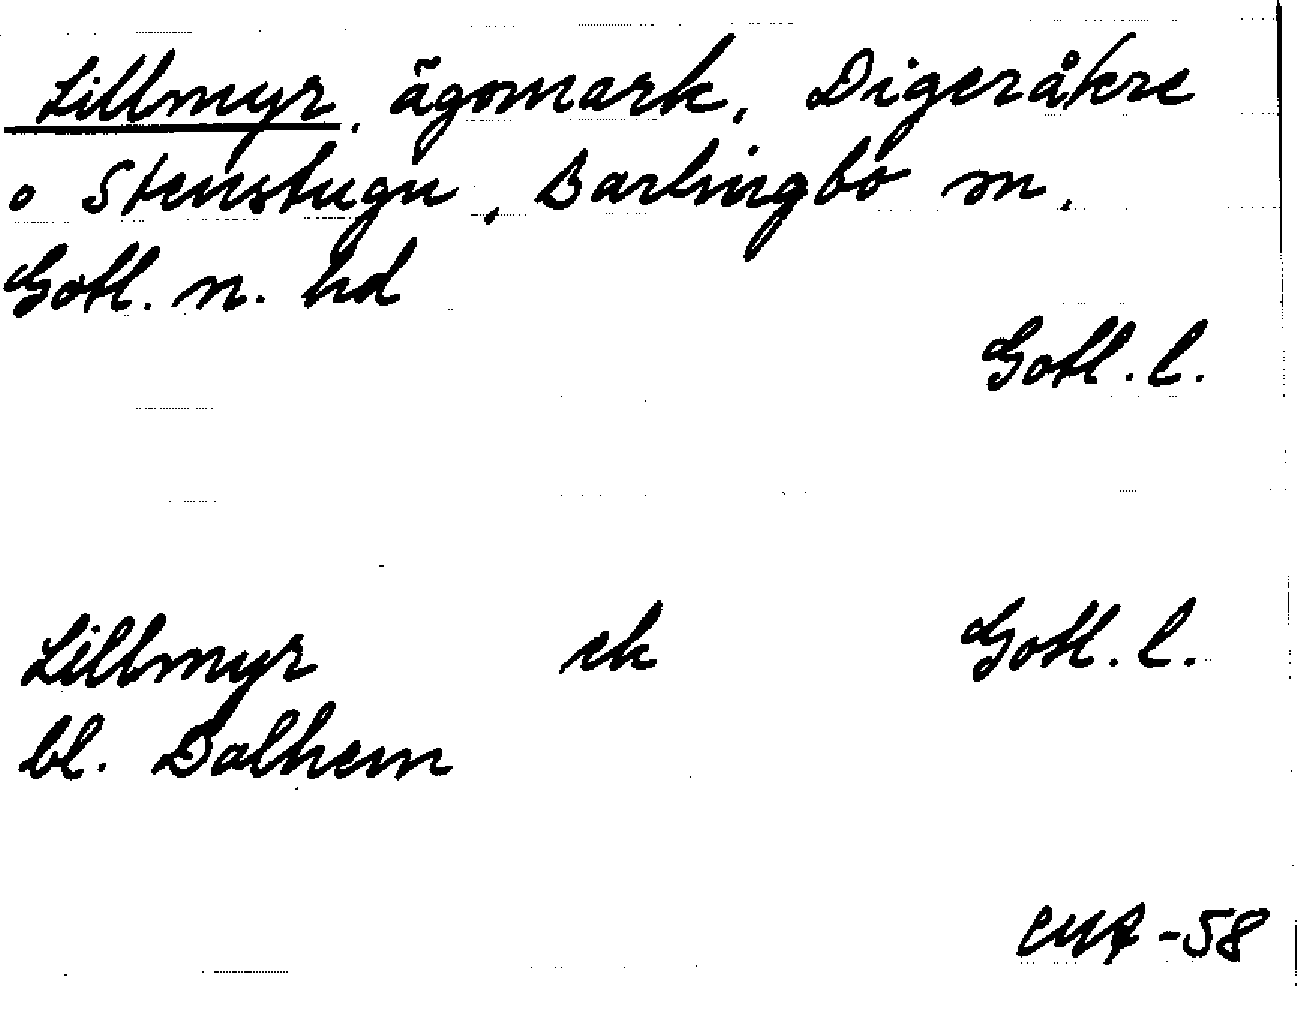 Lillmyr, ägomark, Digeråkre
o Stenstugu, Barlingbo sn,
Gotl. n. hd
Gotl. l.
Lillmyr ek Gotl. l.
bl. Dalhem
-58